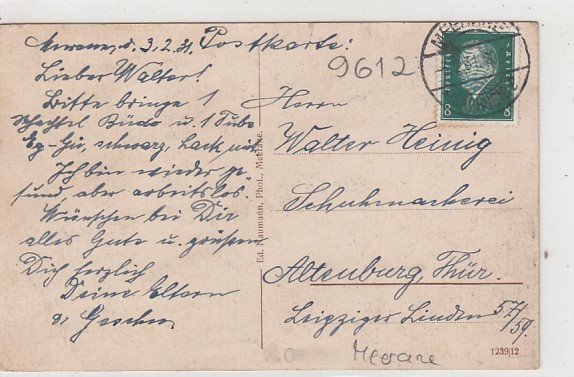 Meerane, d. 3.2.31. Postkarte!
Lieber Walter!
Bitte bringe 1
Schachtel Büdo u. 1 Tube
schwarz, Lack, mit.
Ich bin wieder ge-
sund aber arbeitslos.
Wünschen bei Dir
alles Gute u. grüßen
Dich herzlich
Deine Eltern
u. Geschw.
Ed. Naumann, Phot., Meerane.
9612
Herrn
Walter Heinig
Schuhmacherei
Altenburg, Thür.
Leipziger Linden 57/
59.
1239|12
Meerane
MEERANE
8 8